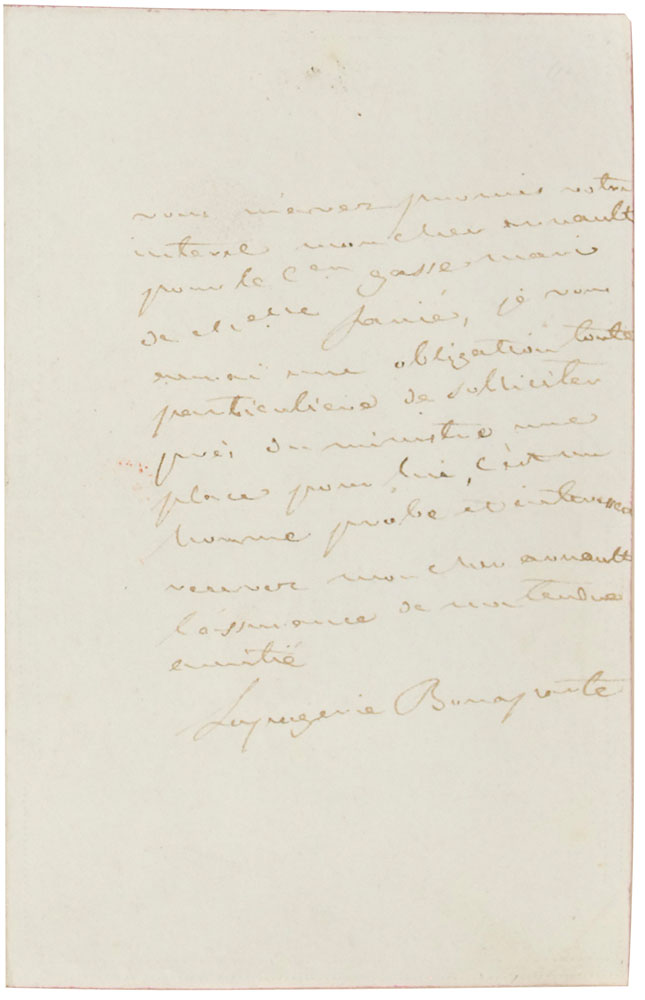 vous m'avez promis votre
interet mon cher arnault
pour le c.en gasse mari
de je vous
aurai une obligation toute
particuliere de solliciter
près du ministre une
place pour lui, c'est un
homme probe et
recevez mon cher arnault
l'assurance de ma tendre
amitié
Lapagerie Bonaparte